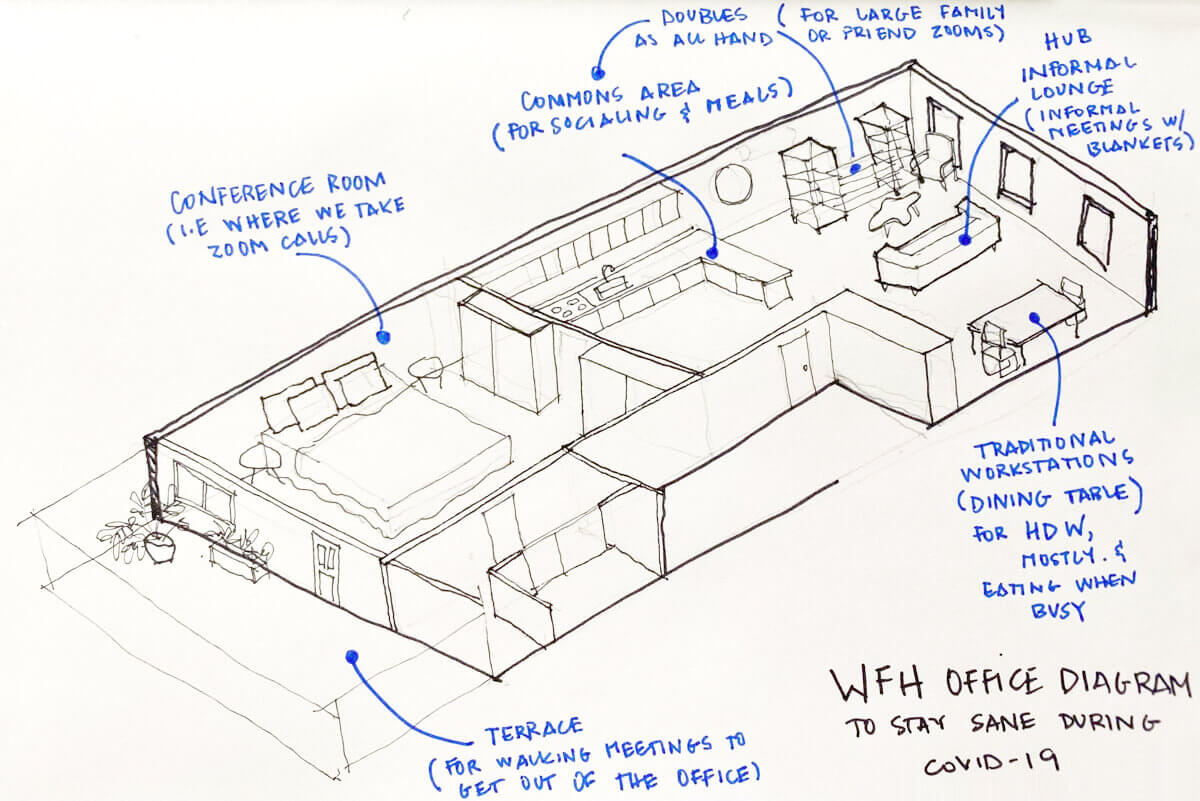 DOUBLES (FOR LARGE FAMILY
AS ALL HAND OR FRIEND ZOOMS)
HUB
INFORMAL
LOUNGE
(INFORMAL
MEETINGS W/
BLANKETS)
COMMONS AREA
(FOR SOCIALING & MEALS)
CONFERENCE ROOM
(I.E WHERE WE TAKE
ZOOM CALLS)
TRADITIONAL
WORKSTATIONS
(DINING TABLE)
FOR HDW,
MOSTLY. &
EATING WHEN
BUSY
TERRACE
(FOR WALKING MEETINGS TO
GET OUT OF THE OFFICE)
WFH OFFICE DIAGRAM
TO STAY SANE DURING
COVID-19